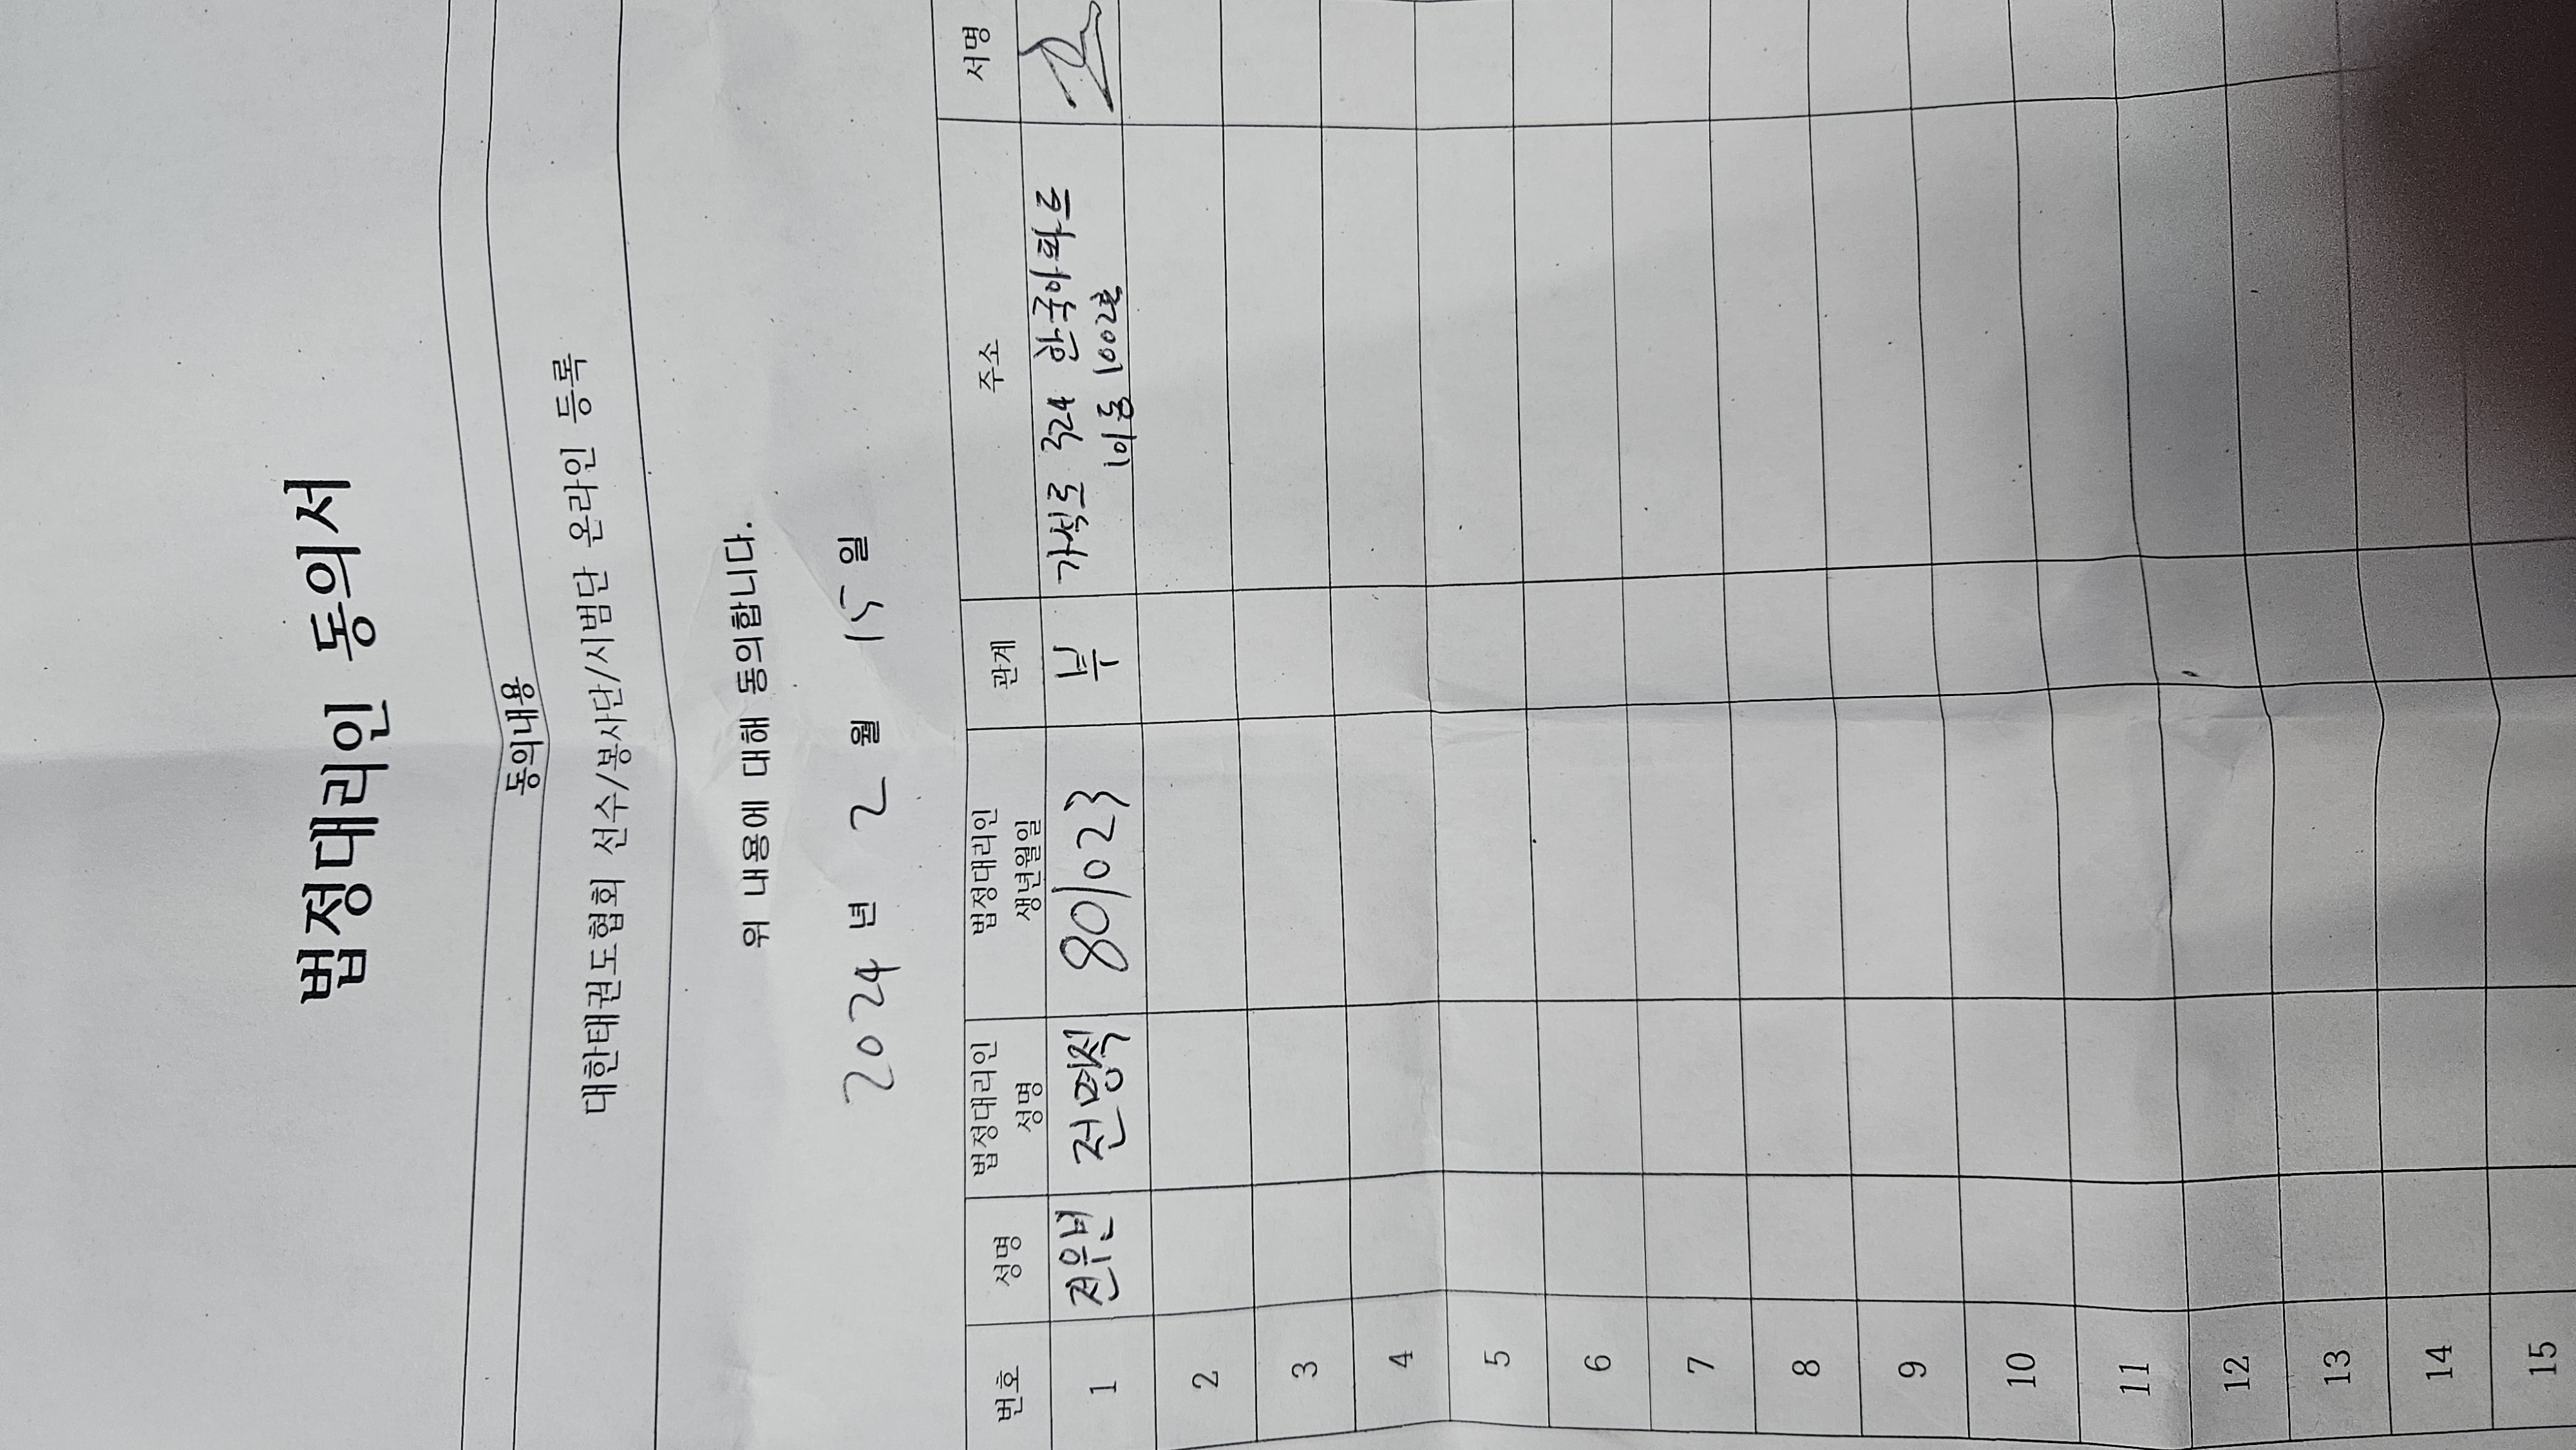 법정대리인 동의서
동의내용
대한태권도협회 선수/봉사단/시범단 온라인 등록
위 내용에 대해 동의합니다.
2024 년 2 월 15 일
번호 성명 법정대리인 성명 법정대리인 생년월일 관계 주소 서명
1 전유빈 전명적 801023 부 가석로 324 한국아파트
101동 1002호
2
3
4
5
6
7
8
9
10
11
12
13
14
15